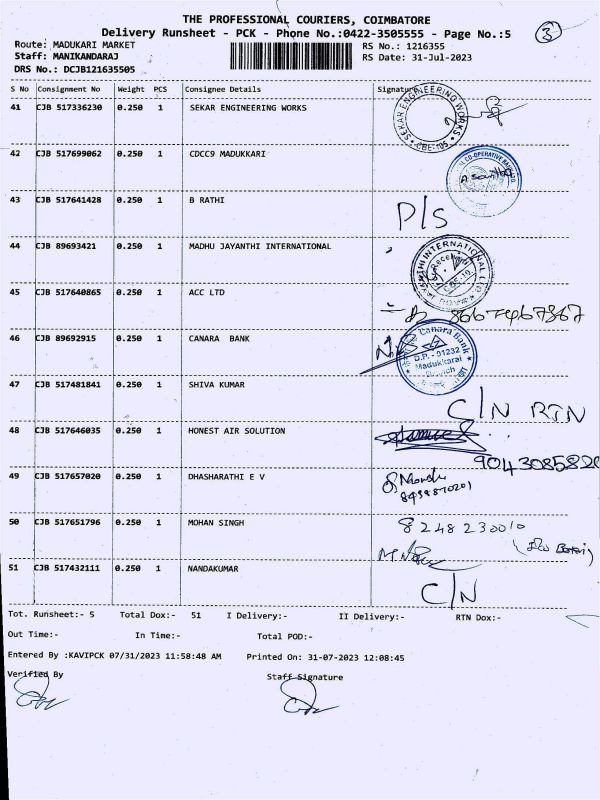 THE PROFESSIONAL COURIERS, COIMBATORE
Delivery Runsheet - PCK - Phone No.:0422-3505555 - Page No.:5
3
Route: MADUKARI MARKET
RS No.: 1216355
Staff: MANIKANDARAJ
RS Date: 31-Jul-2023
DRS No.: DCJB121635505
S No Consignment No Weight PCS Consignee Details Signature
41 CJB 517336230 0.250 1 SEKAR ENGINEERING WORKS
SEKAR ENGINEERING WORKS * CBE-105 *
42 CJB 517699062 0.250 1 CDCC9 MADUKKARI
CO-OPERATIVE
43 CJB 517641428 0.250 1 B RATHI
D/S
44 CJB 89693421 0.250 1 MADHU JAYANTHI INTERNATIONAL
INTERNATIONAL
45 CJB 517640865 0.250 1 ACC LTD
46 CJB 89692915 0.250 1 CANARA BANK
Canara Bank
D.P. - 01232
Madukkarai
Branch
47 CJB 517481841 0.250 1 SHIVA KUMAR
C/N RTN
48 CJB 517646035 0.250 1 HONEST AIR SOLUTION
9043085820
49 CJB 517657020 0.250 1 DHASHARATHI E V
50 CJB 517651796 0.250 1 MOHAN SINGH
8248230010
51 CJB 517432111 0.250 1 NANDAKUMAR
C/N
Tot. Runsheet:- 5 Total Dox:- 51 I Delivery:- II Delivery:- RTN Dox:-
Out Time:- In Time:- Total POD:-
Entered By :KAVIPCK 07/31/2023 11:58:48 AM Printed On: 31-07-2023 12:08:45
Verified By Staff Signature